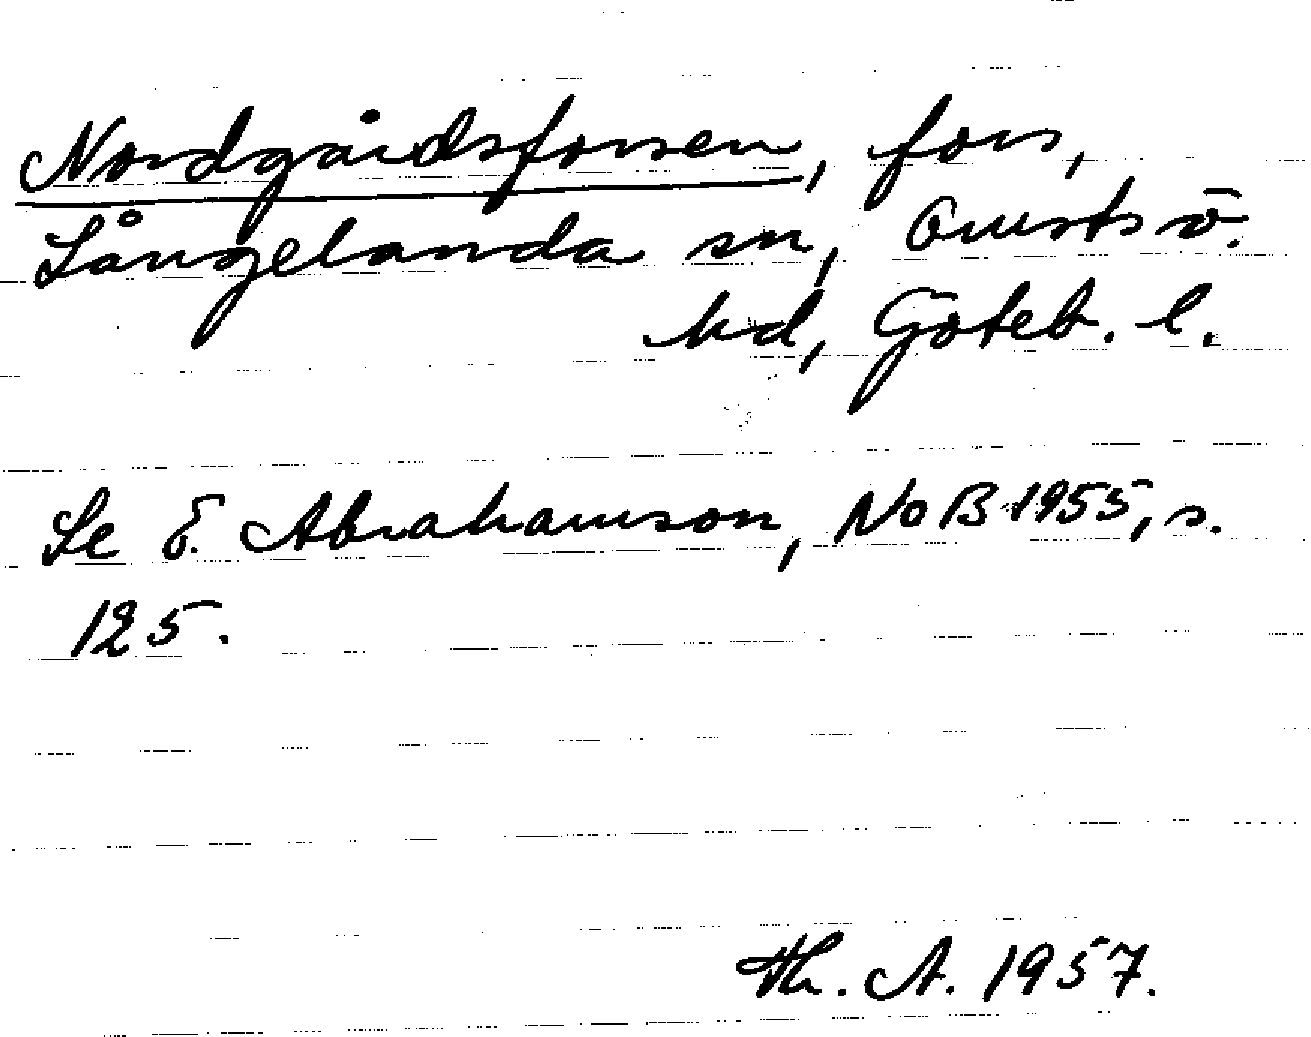 Nordgårdsforsen, fors,
Långelanda sn, Orusts v.
hd, Göteb. l.
Se E. Abrahamson, NoB 1955, s.
125.
Th. A. 1957.